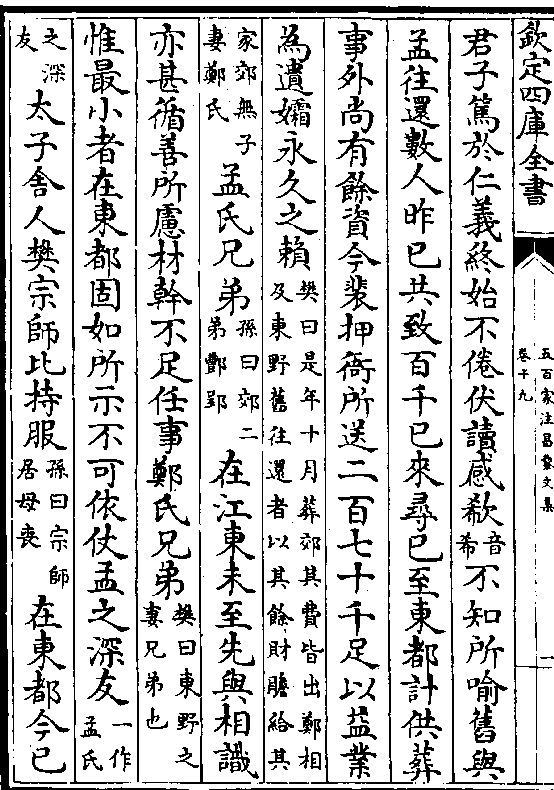 欽定四庫全書
五百家注昌黎文集
卷十九
一
君子篤於仁義終始不倦伏讀感欷音希不知所喻舊與
孟往還數人昨已共致百千已來尋已至東都計供葬
事外尚有餘資今裴押衙所送二百七十千足以益業
為遺孀永久之賴樊曰是年十月葬郊其費皆出鄭相及東野舊往還者以其餘財贍給其
家郊無子妻鄭氏孟氏兄弟孫曰郊二弟酆郢在江東未至先與相識
亦甚循善所慮材幹不足任事鄭氏兄弟樊曰東野之妻兄弟也
惟最小者在東都固如所示不可依仗孟之深友一作孟氏
之深友太子舍人樊宗師比持服孫曰宗師居母喪在東都今已